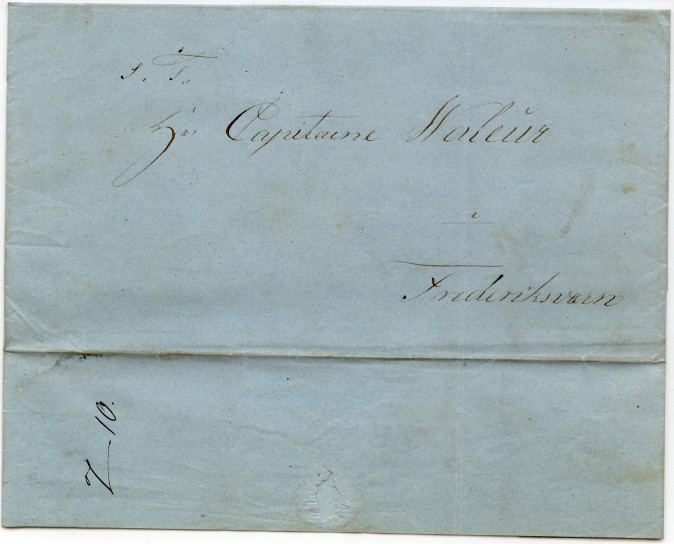 S. T.
Hr. Capitaine Waleur
i
Frederiksværn
10.